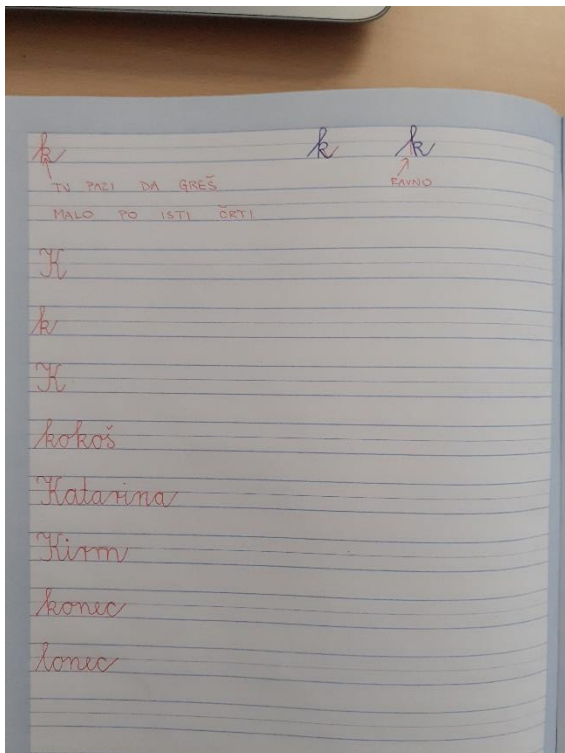 k k k
TU PAZI DA GREŠ RAVNO
MALO PO ISTI ČRTI
K
k
K
kokoš
Katarina
Kirm
konec
lonec